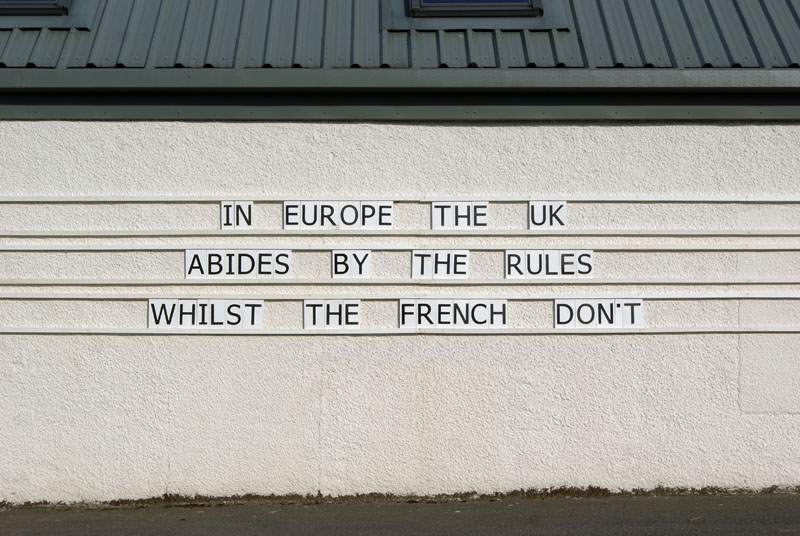 IN EUROPE THE UK
ABIDES BY THE RULES
WHILST THE FRENCH DON'T